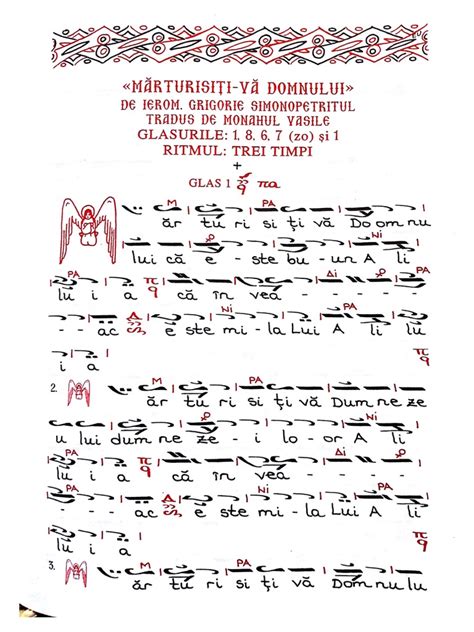 «MĂRTURISIȚI-VĂ DOMNULUI»
DE IEROM. GRIGORIE SIMONOPETRITUL
TRADUS DE MONAHUL VASILE
GLASURILE: 1, 8, 6, 7 (zo) și 1
RITMUL: TREI TIMPI
+
GLAS 1 πα
M PA
ăr tu ri si ți vă Do om nu
Ni
lui că e - ste bu - un A li
PA Δi PA
lu i a că în vea - - - -
Ni PA
- - - ac e ste mi - la Lui A li lu
i a
2. M PA
ăr tu ri si ți vă Dum ne ze
Ni
u lui dum ne ze - i lo - or A li
PA PA
lu i a că în vea - - - - -
Ni PA
- - - ac e ste mi - la Lui A li
lu i a
3. M PA
ăr tu ri si ți vă Dom nu lu